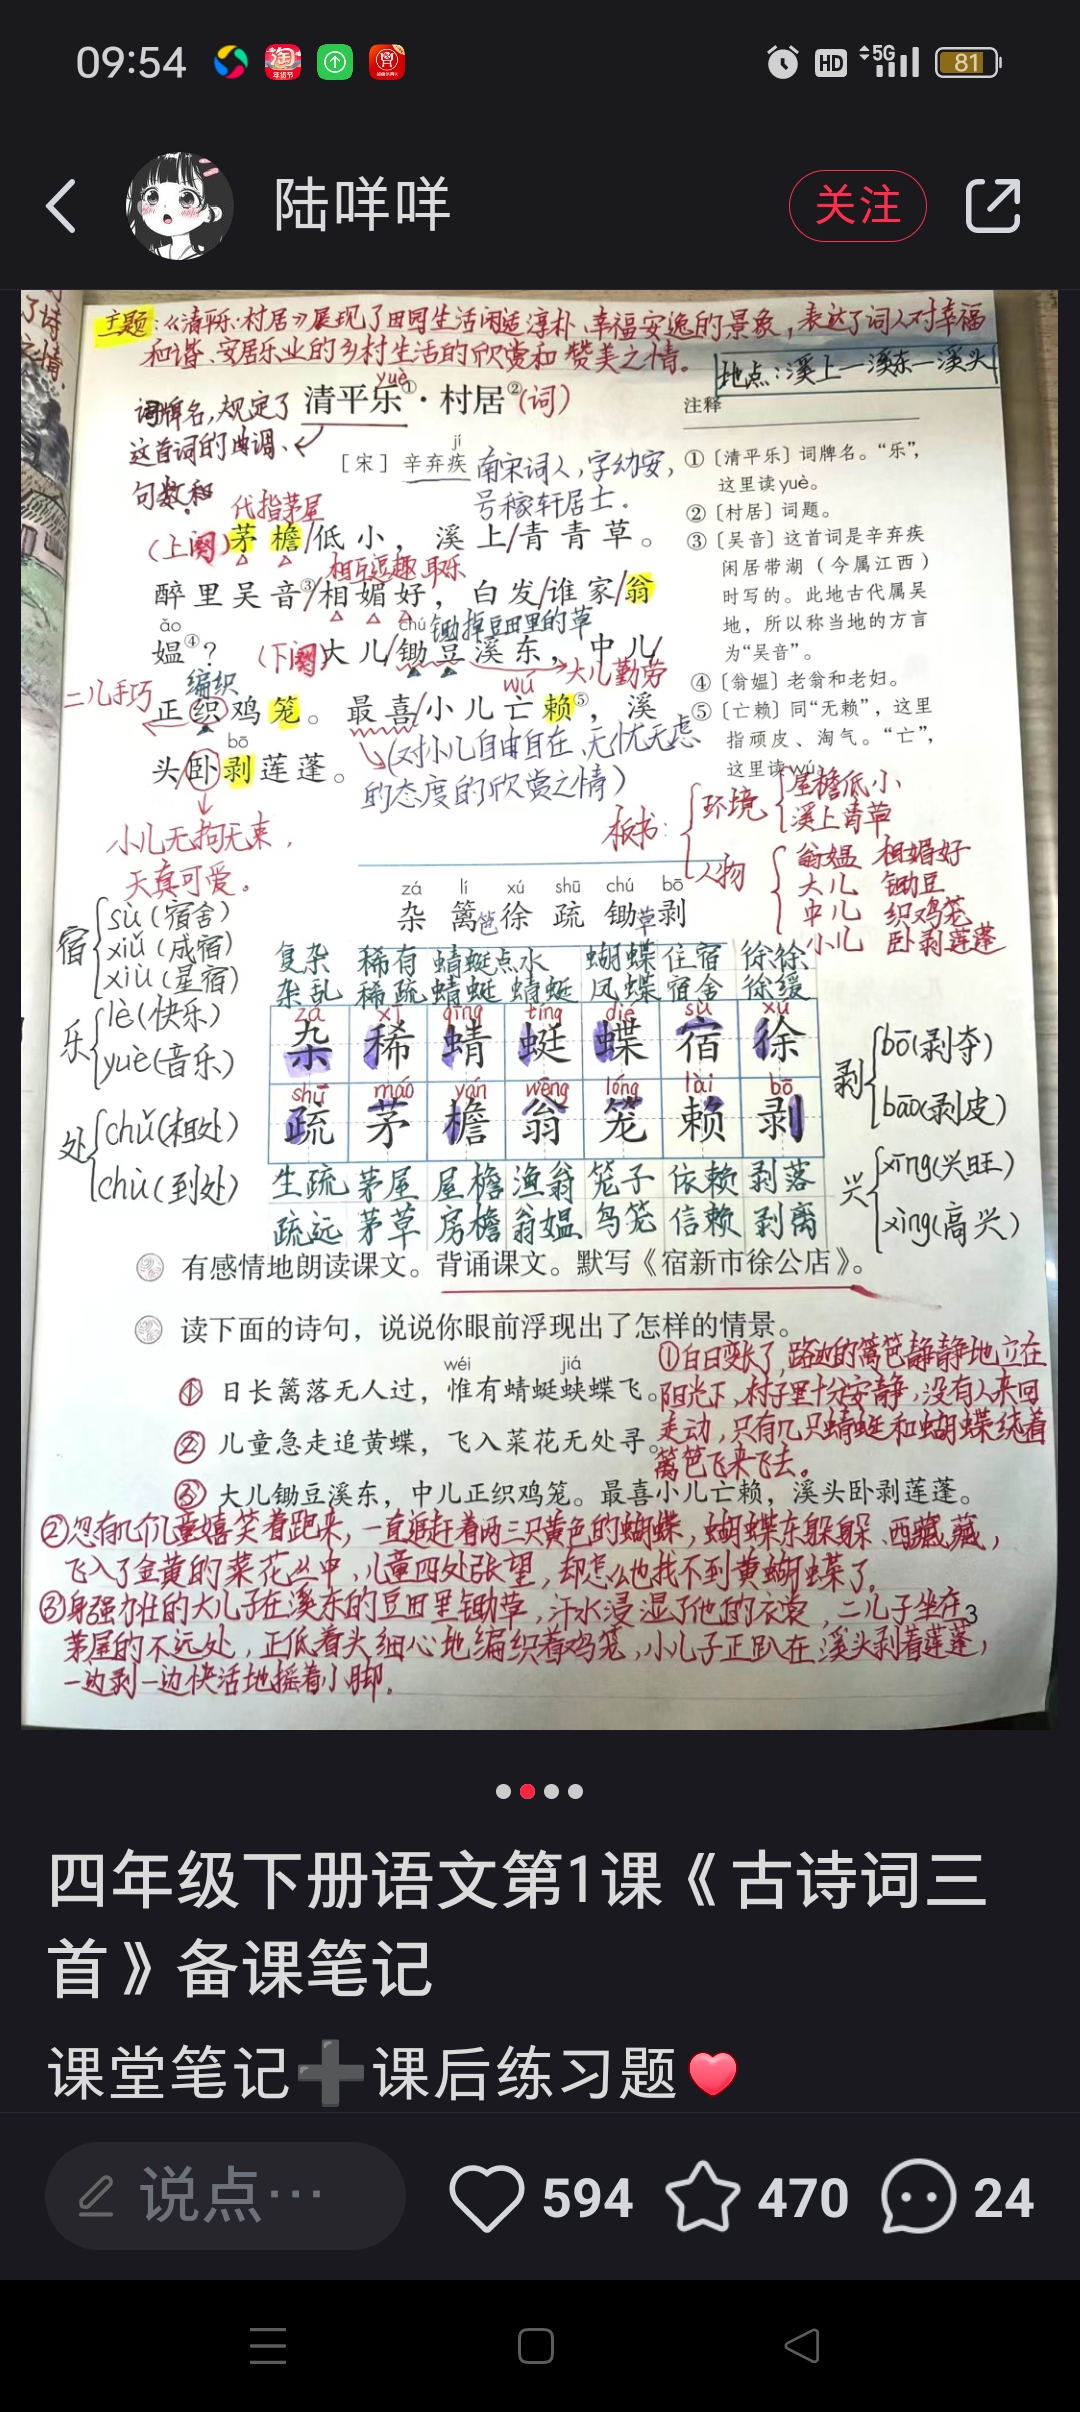 09:54
HD 5G 81
陆咩咩
关注
主题：《清平乐·村居》展现了田园生活闲适淳朴、幸福安逸的景象，表达了词人对幸福
和谐、安居乐业的乡村生活的欣赏和赞美之情。
地点：溪上—溪东—溪头
yuè
清平乐①·村居②(词)
词牌名，规定了
这首词的曲调、
句数和
jí
［宋］辛弃疾 南宋词人，字幼安，
号稼轩居士．
代指茅屋
(上阕)茅檐/低小，溪上/青青草。
相互逗趣、取乐
醉里吴音③/相媚好，白发/谁家/翁
ǎo chú 锄掉豆田里的草
媪④？(下阕)大儿/锄豆溪东，中儿/
二儿手巧 编织 wú 大儿勤劳
正织鸡笼。最喜/小儿亡赖⑤，溪
bō
头/卧剥莲蓬。
(对小儿自由自在、无忧无虑
的态度的欣赏之情)
小儿无拘无束，
天真可爱。
注释
①〔清平乐〕词牌名。“乐”，
这里读yuè。
②〔村居〕词题。
③〔吴音〕这首词是辛弃疾
闲居带湖（今属江西）
时写的。此地古代属吴
地，所以称当地的方言
为“吴音”。
④〔翁媪〕老翁和老妇。
⑤〔亡赖〕同“无赖”，这里
指顽皮、淘气。“亡”，
这里读wú。
板书：
环境 屋檐低小
溪上青草
人物 翁媪 相媚好
大儿 锄豆
中儿 织鸡笼
小儿 卧剥莲蓬
zá lí xú shū chú bō
杂 篱笆 徐 疏 锄草 剥
宿 sù(宿舍)
xiǔ(成宿)
xiù(星宿)
乐 lè(快乐)
yuè(音乐)
处 chǔ(相处)
chù(到处)
复杂 稀有 蜻蜓点水 蝴蝶 住宿 徐徐
杂乱 稀疏 蜻蜓 蜻蜓 凤蝶 宿舍 徐缓
zá xī qīng tíng dié sù xú
杂 稀 蜻 蜓 蝶 宿 徐
shū máo yán wēng lóng lài bō
疏 茅 檐 翁 笼 赖 剥
生疏 茅屋 屋檐 渔翁 笼子 依赖 剥落
疏远 茅草 房檐 翁媪 鸟笼 信赖 剥离
剥 bō(剥夺)
bāo(剥皮)
兴 xīng(兴旺)
xìng(高兴)
有感情地朗读课文。背诵课文。默写《宿新市徐公店》。
读下面的诗句，说说你眼前浮现出了怎样的情景。
wéi jiá
① 日长篱落无人过，惟有蜻蜓蛱蝶飞。
② 儿童急走追黄蝶，飞入菜花无处寻。
③ 大儿锄豆溪东，中儿正织鸡笼。最喜小儿亡赖，溪头卧剥莲蓬。
①白日变长了，路边的篱笆静静地立在
阳光下，村子里十分安静，没有人来回
走动，只有几只蜻蜓和蝴蝶绕着
篱笆飞来飞去。
②忽有几个儿童嬉笑着跑来，一直追赶着两三只黄色的蝴蝶，蝴蝶东躲躲、西藏藏，
飞入了金黄的菜花丛中，儿童四处张望，却怎么也找不到黄蝴蝶了。
③身强力壮的大儿子在溪东的豆田里锄草，汗水浸湿了他的衣裳，二儿子坐在
3
茅屋的不远处，正低着头细心地编织着鸡笼，小儿子正趴在溪头剥着莲蓬，
一边剥一边快活地摇着小脚．
四年级下册语文第1课《古诗词三
首》备课笔记
课堂笔记➕课后练习题❤️
说点… 594 470 24